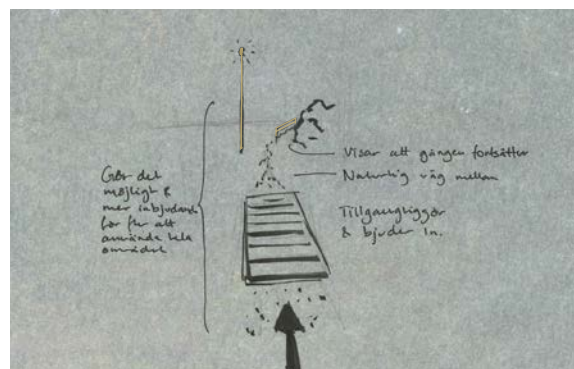 Gör det
möjligt &
mer inbjudande
för fler att
använda hela
området
Visar att gången fortsätter
Naturlig väg mellan
Tillgängliggör
& bjuder in.